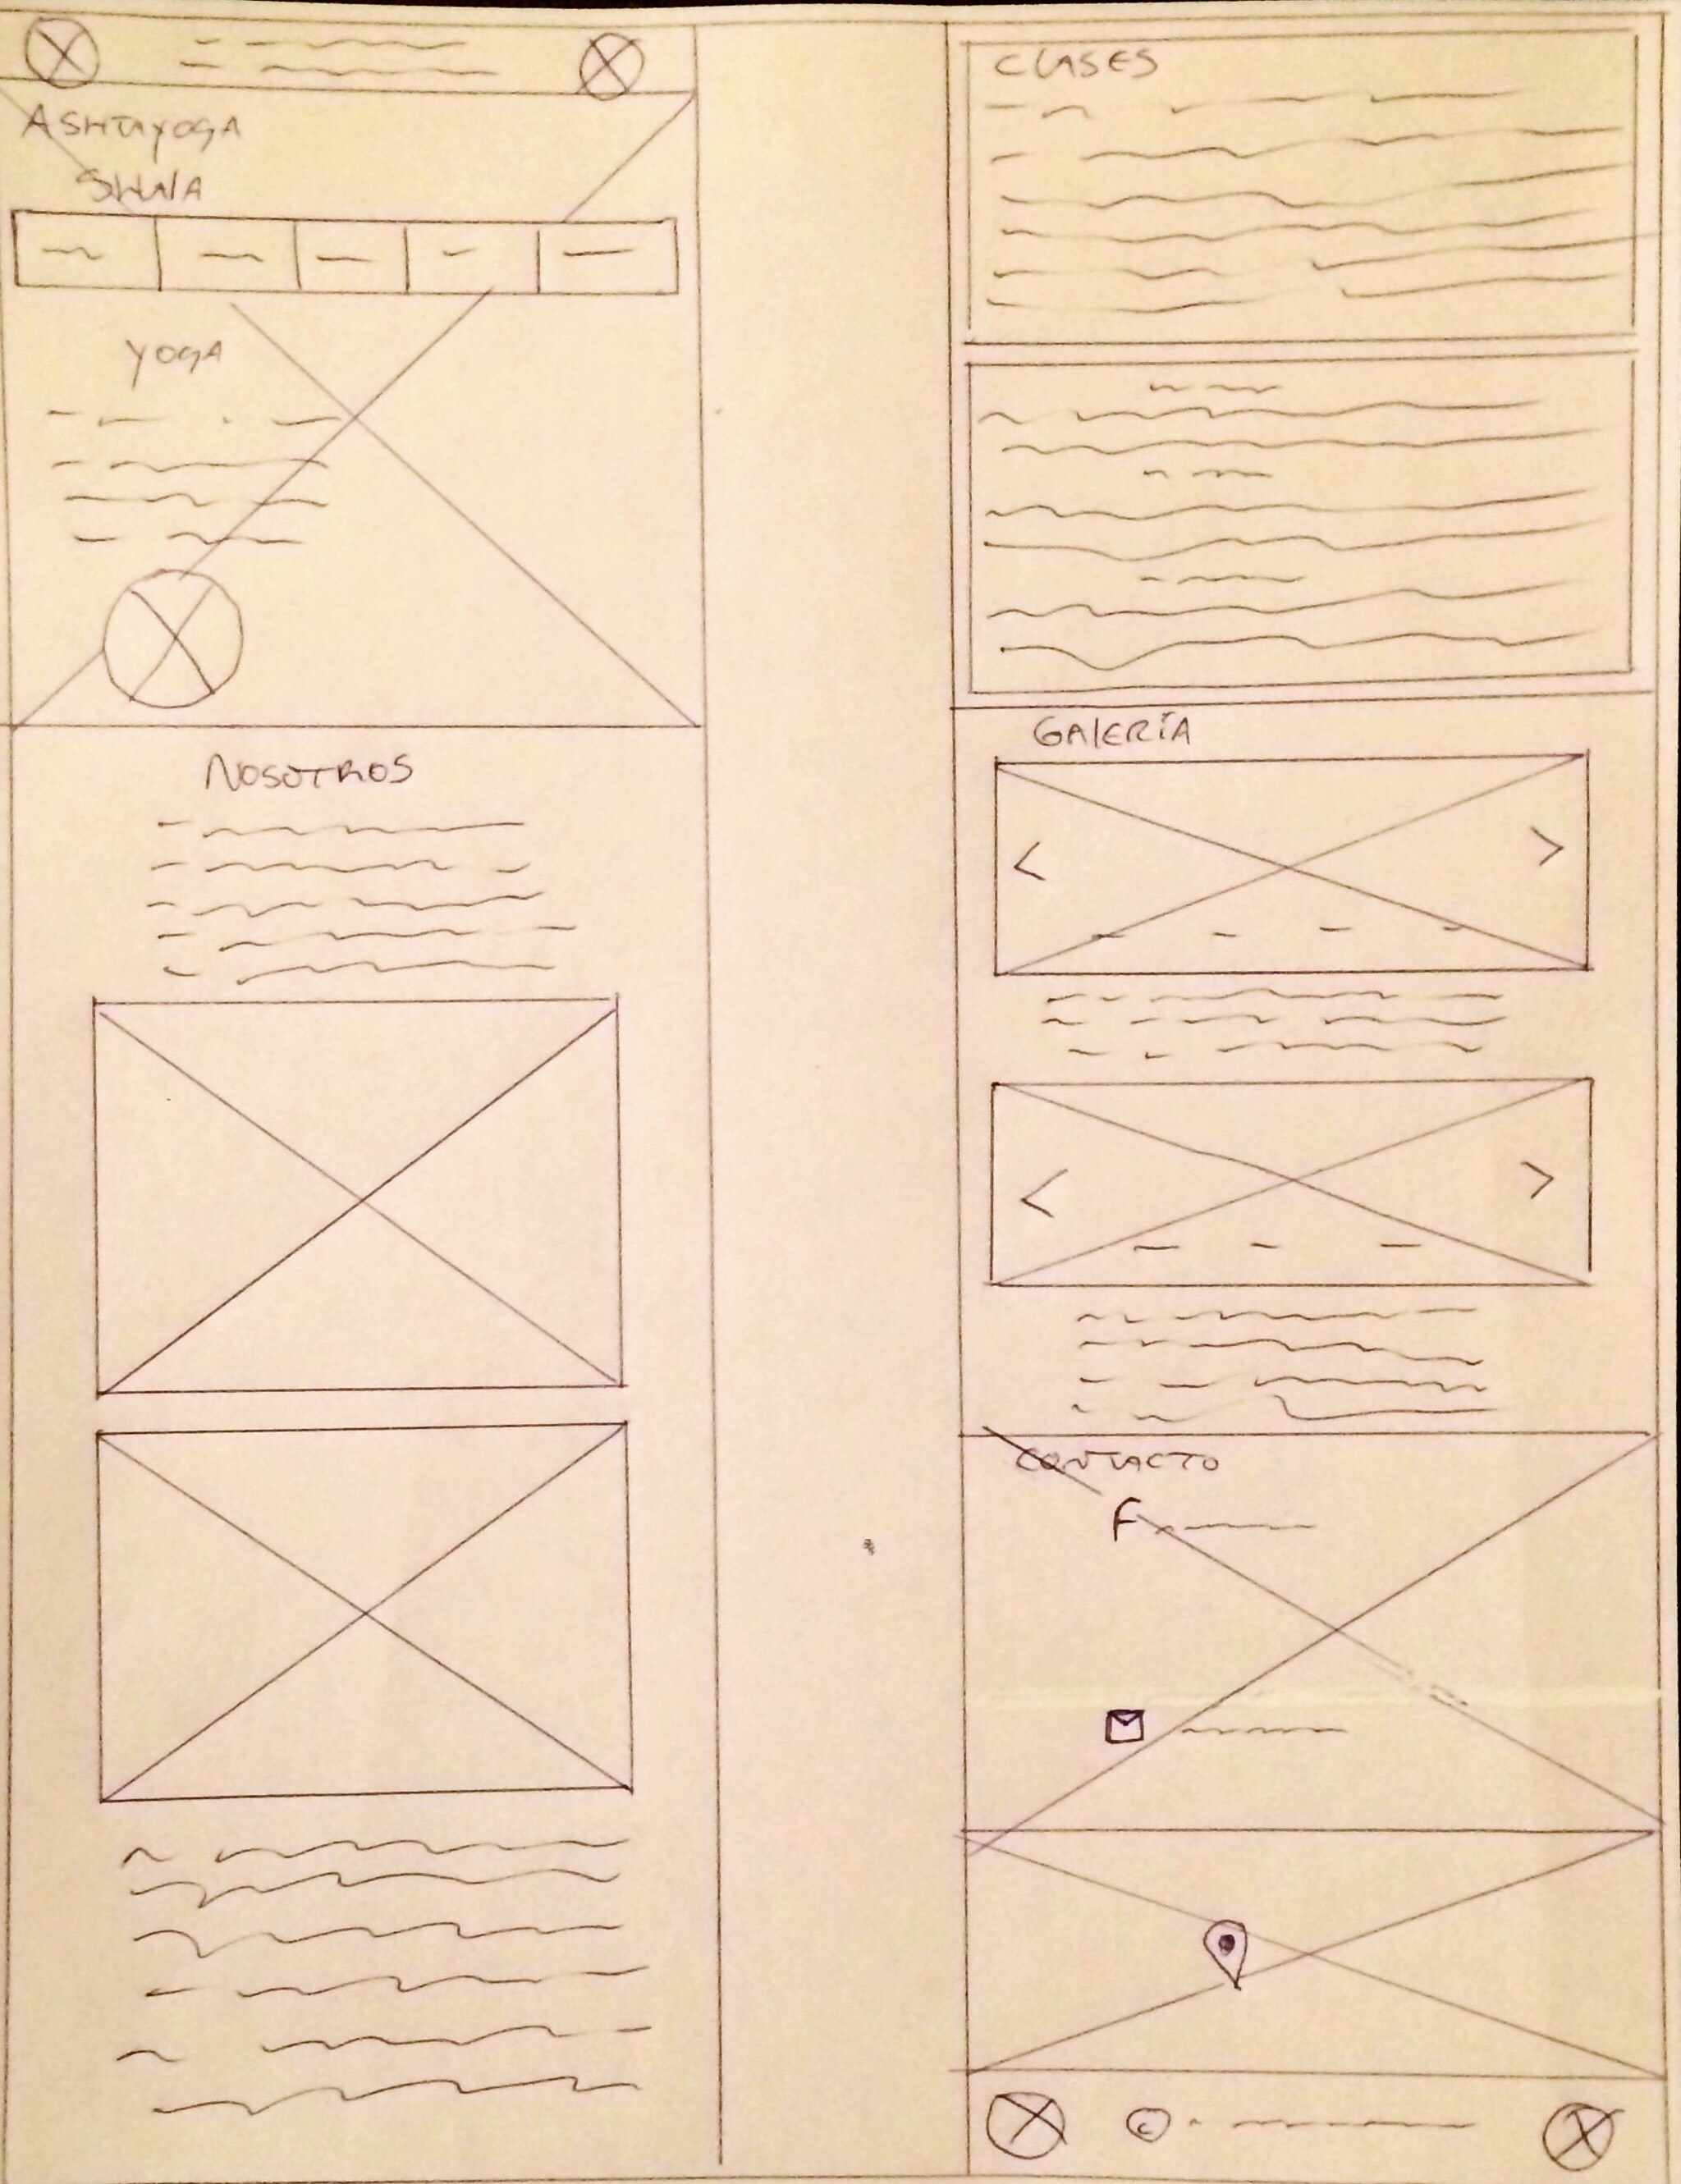 ASHTAYOGA
SHALA
YOGA
NOSOTROS
CLASES
GALERÍA
CONTACTO
F
©